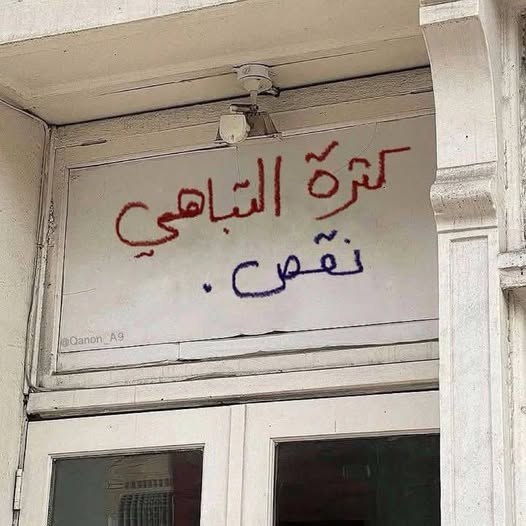 كثرة التباهي
نقص .
@Qanon_A9